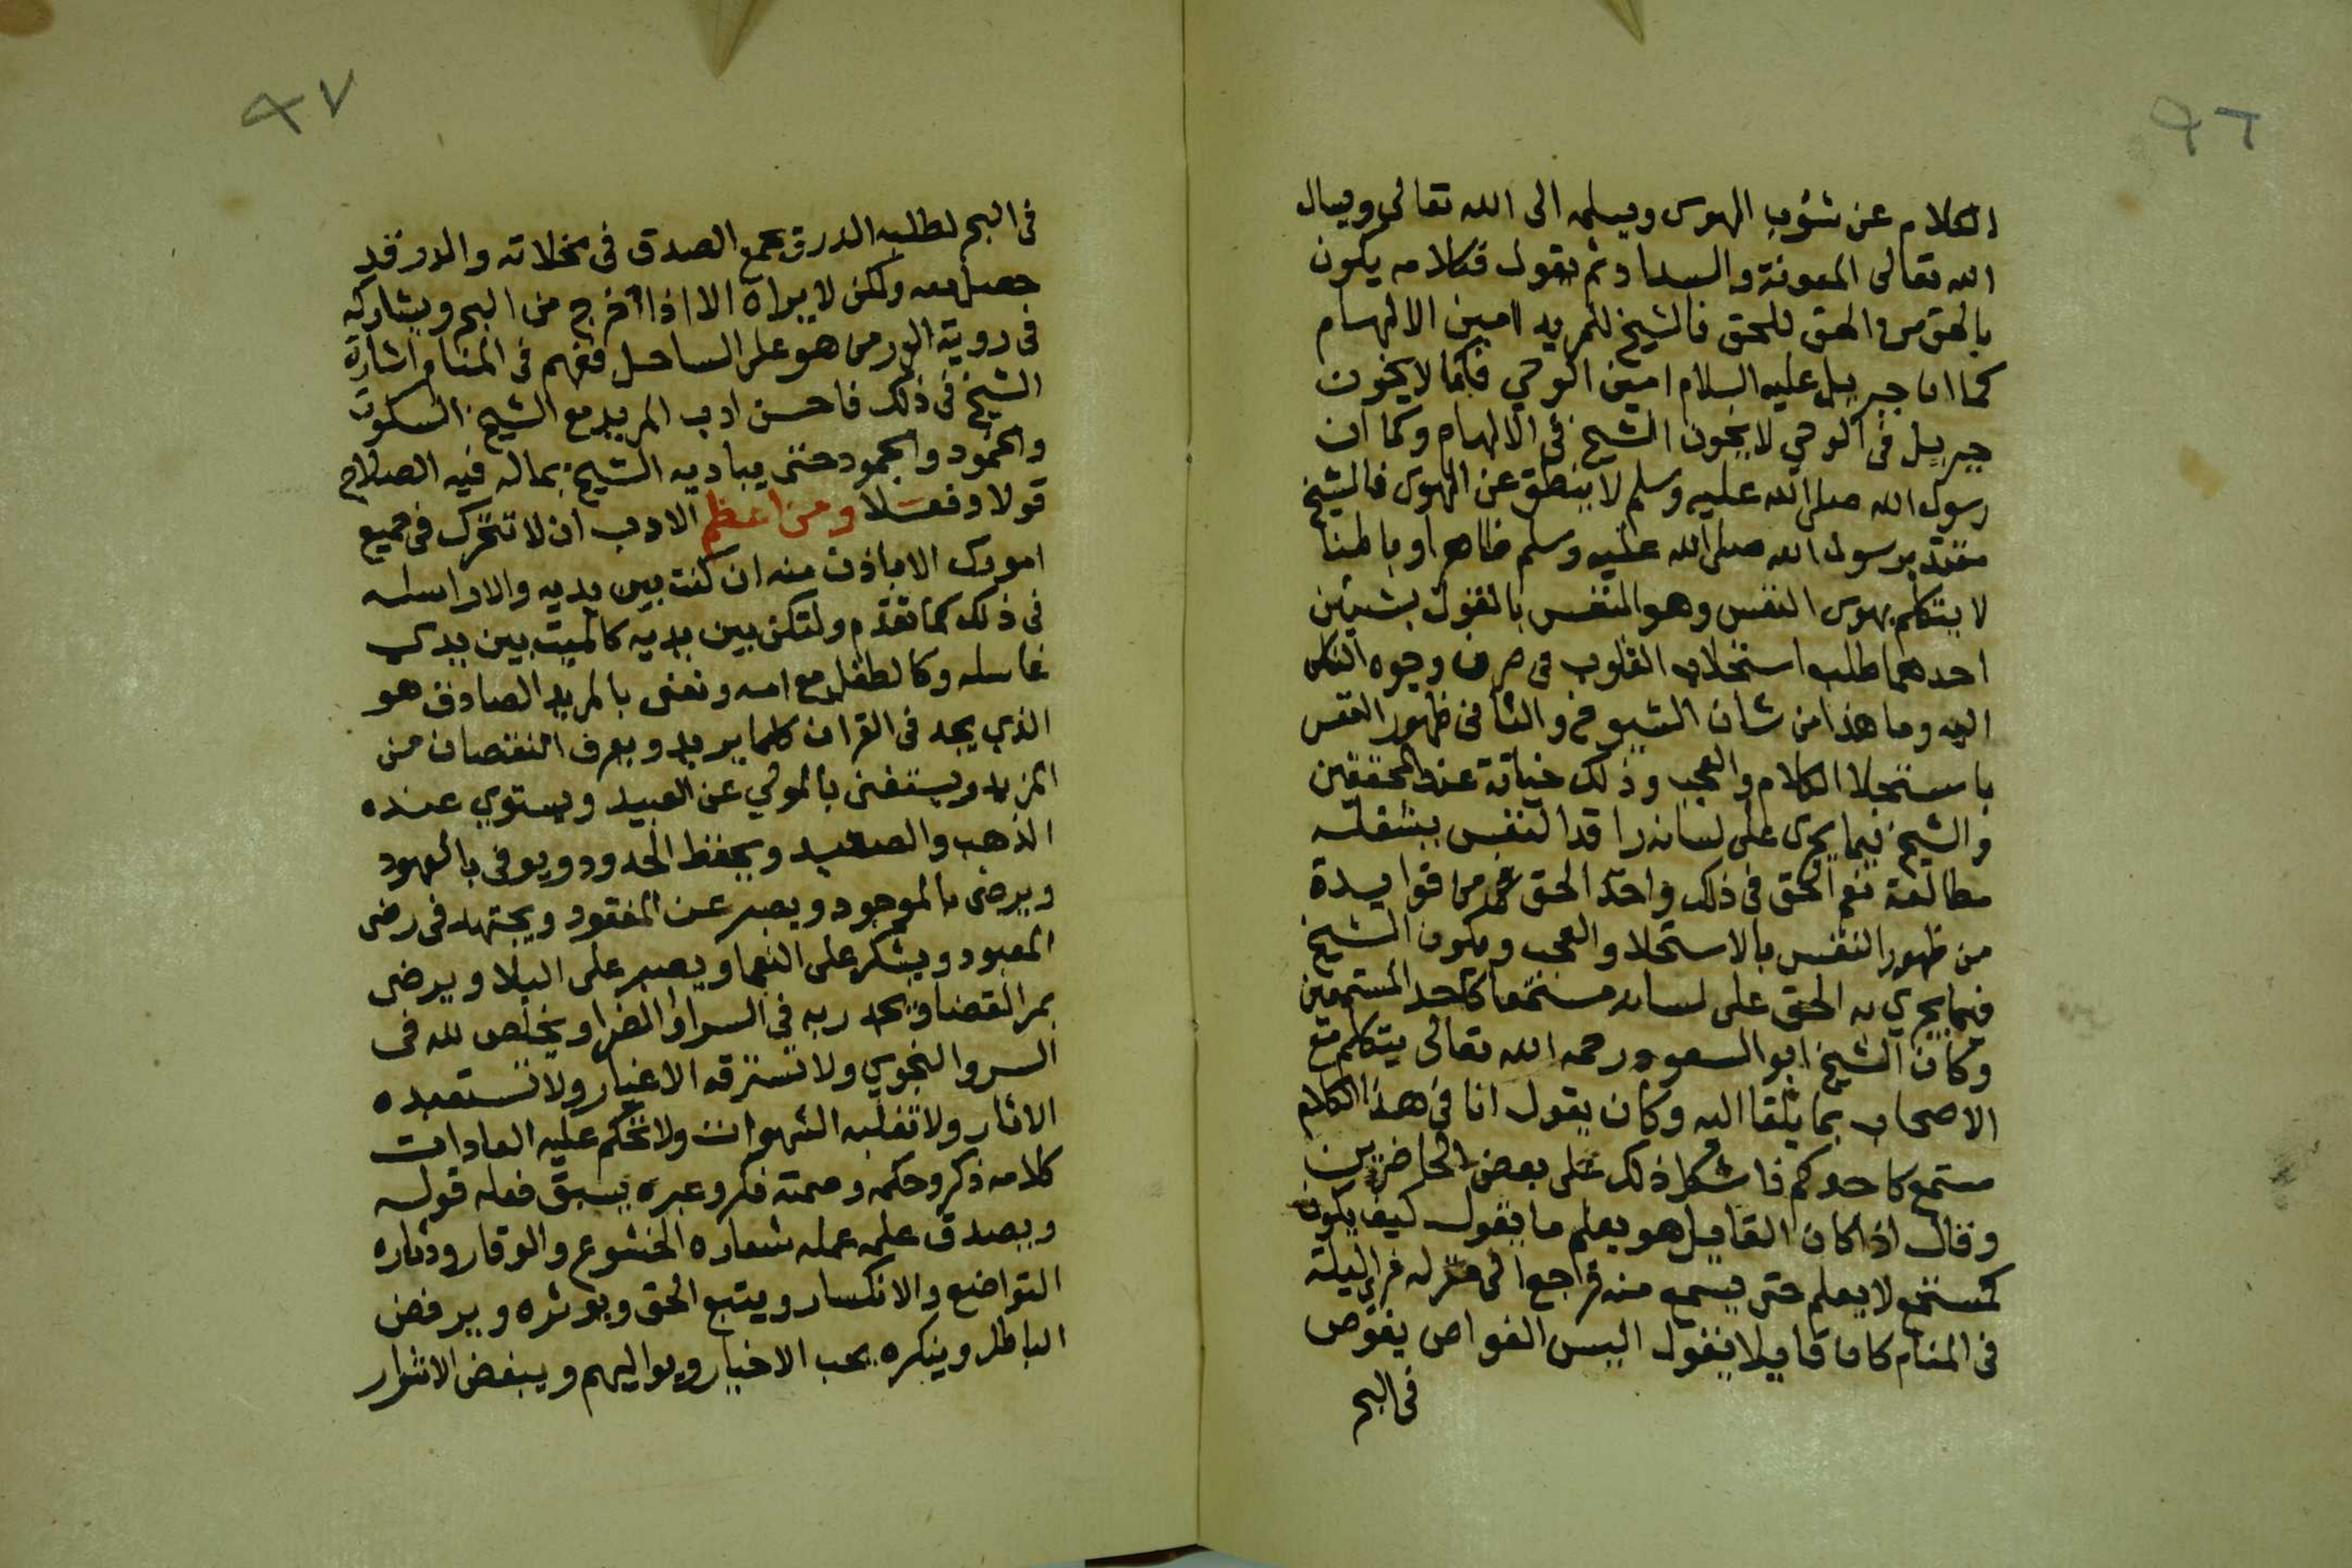 ٩٦
الكلام عن شؤب الهوى ويسلمه الى الله تعالى ويسال
الله تعالى المعونة والسداد ثم يقول فكلامه يكون
بالحق من الحق للحق فالشيخ للمريد امين الالهام
كما ان جبريل عليه السلام امين الوحي فكما لا يخون
جبريل في الوحي لا يخون الشيخ في الالهام وكما ان
رسول الله صلى الله عليه وسلم لا ينطق عن الهوى فالشيخ
مقتد برسول الله صلى الله عليه وسلم ظاهرا وباطنا
لا يتكلم بهوى النفس وهو النفس بالقول بشيئين
احدهما طلب استجلاب القلوب في صرف وجوه الناس
اليه وما هذا من شان الشيوخ والثاني ظهور النفس
باستحلا الكلام والعجب وذلك خيانة عند المحققين
والشيخ فيما يجرى على لسانه راقد النفس بشغله
مطالعة نعم الحق في ذلك فاقد الحق من فوايدة
من ظهور النفس بالاستحلا والعجب ويكون الشيخ
فيما يجري به الحق على لسانه مستمعا كاحد المستمعين
وكان الشيخ ابو السعود رحمه الله تعالى يتكلم مع
الاصحاب بما يلقا اليه وكان يقول انا في هذا الكلام
مستمع كاحدكم فاشكل ذلك على بعض الحاضرين
وقال اذا كان القايل هو يعلم ما يقول كيف يكون
كمستمع لا يعلم حتى يسمع منه فراجع الى منزله فراى ليلة
في المنام كان قايلا يقول اليس الغواص يغوص
في البحر
٩٧
في البحر لطلب الدر ق يجمع الصدق في مخلاته والدر قد
حصل معه ولكن لا يراه الا اذا اخرج من البحر ويشاركه
في روية الدر من هو على الساحل ففهم في المنام اشارة
الشيخ في ذلك فاحسن ادب المريد مع الشيخ السكوت
والخمود والجمود حتى يباديه الشيخ بماله فيه الصلاح
قولا وفعلا ومن اعظم الادب ان لا تتحرك في جميع
امورك الا باذن منه ان كنت بين يديه والا راسله
في ذلك كما تقدم ولتكن بين يديه كالميت بين يدي
غاسله وكالطفل مع امه ونعني بالمريد الصادق هو
الذي يجد في القران كلما يريد ويعرف النقصان من
المزيد ويستغني بالمولي عن العبيد ويستوي عنده
الذهب والصعيد ويحفظ الحدود ويوفي بالعهود
ويرضى بالموجود ويصبر عن المفقود ويجتهد في رضى
المعبود ويشكر على النعما ويصبر على البلا ويرضى
بمر القضا ويحمد ربه في السرا والضرا ويخلص لله في
السر والنجوي ولا تسترقه الاغيار ولا تستعبده
الاثار ولا تغلبه الشهوات ولا تحكم عليه العادات
كلامه ذكر وحكمه وصمته فكر وعبره يسبق فعله قوله
ويصدق علمه عمله شعاره الخشوع والوقار ودثاره
التواضع والانكسار ويتبع الحق ويوثره ويرفض
الباطل وينكره يحب الاخيار ويواليهم ويبغض الاشرار